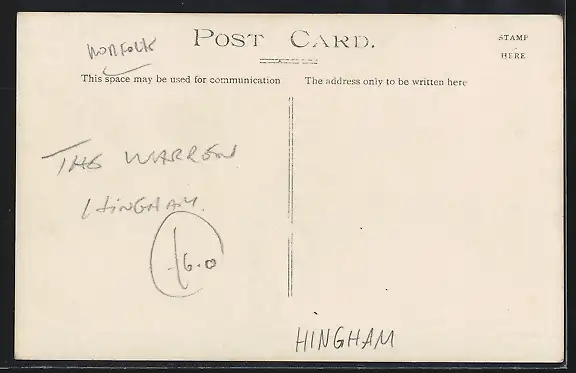 NORFOLK
POST CARD.
STAMP
HERE
This space may be used for communication
The address only to be written here
THE WARREN
HINGHAM.
£6.0
HINGHAM